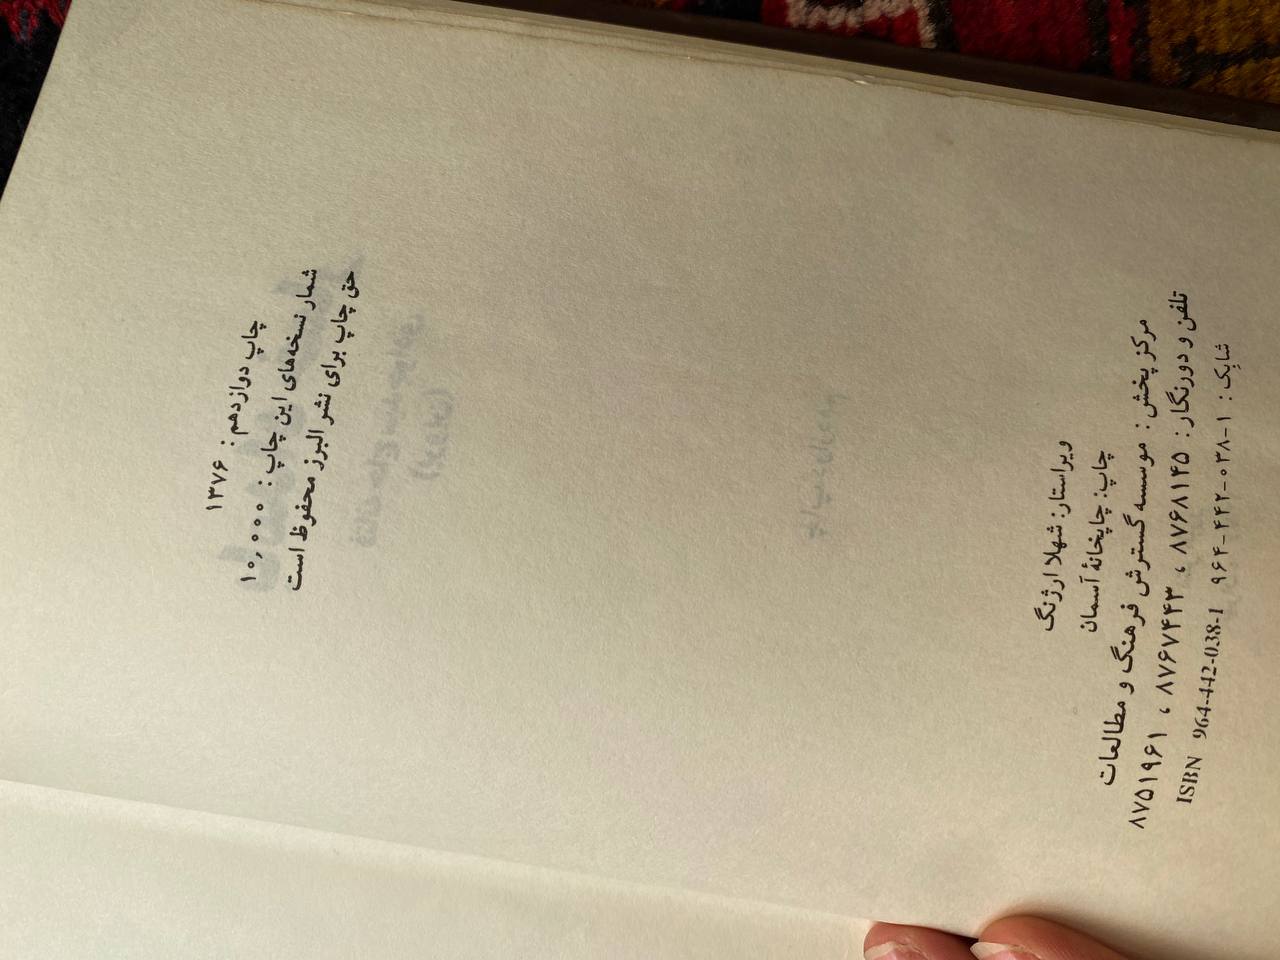 چاپ دوازدهم: ۱۳۷۶
شمار نسخه‌های این چاپ: ۱۰,۰۰۰
حق چاپ برای نشر البرز محفوظ است
ویراستار: شهلا ارژنگ
چاپ: چاپخانهٔ آسمان
مرکز پخش: موسسه گسترش فرهنگ و مطالعات
تلفن و دورنگار: ۸۷۶۸۱۴۵ ، ۸۷۶۷۴۴۳ ، ۸۷۵۱۹۶۱
شابک: ۱-۰۳۸-۴۴۲-۹۶۴ ISBN 964-442-038-1